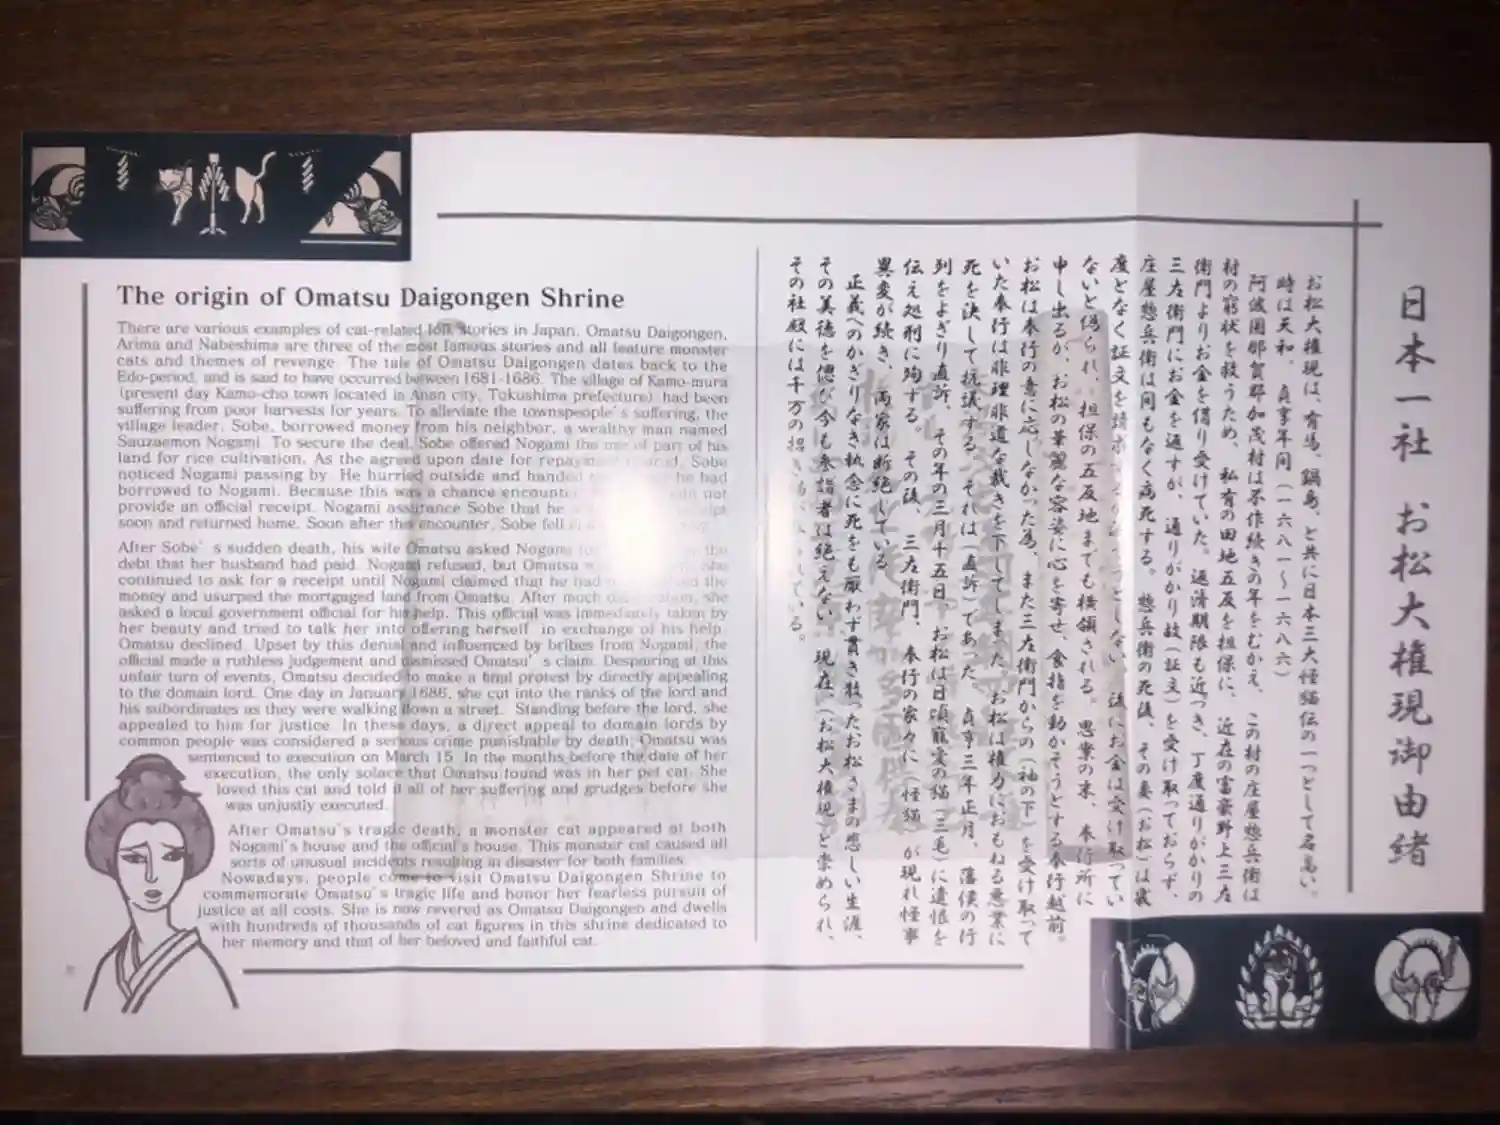 The origin of Omatsu Daigongen Shrine
There are various examples of cat-related folk stories in Japan. Omatsu Daigongen,
Arima and Nabeshima are three of the most famous stories and all feature monster
cats and themes of revenge. The tale of Omatsu Daigongen dates back to the
Edo-period, and is said to have occurred between 1681-1686. The village of Kamo-mura
(present day Kamo-cho town located in Anan city, Tokushima prefecture) had been
suffering from poor harvests for years. To alleviate the townspeople's suffering, the
village leader, Sobe, borrowed money from his neighbor, a wealthy man named
Sauzaemon Nogami. To secure the deal, Sobe offered Nogami the use of part of his
land for rice cultivation. As the agreed upon date for repayment Sobe
noticed Nogami passing by. He hurried outside and handed he had
borrowed to Nogami. Because this was a chance encounter not
provide an official receipt. Nogami assurance Sobe that he
soon and returned home. Soon after this encounter, Sobe fell
After Sobe's sudden death, his wife Omatsu asked Nogami the
debt that her husband had paid. Nogami refused, but Omatsu She
continued to ask for a receipt until Nogami claimed that he had the
money and usurped the mortgaged land from Omatsu. After much she
asked a local government official for his help. This official was immediately taken by
her beauty and tried to talk her into offering herself in exchange of his help.
Omatsu declined. Upset by this denial and influenced by bribes from Nogami, the
official made a ruthless judgement and dismissed Omatsu's claim. Despairing at this
unfair turn of events, Omatsu decided to make a final protest by directly appealing
to the domain lord. One day in January 1686, she cut into the ranks of the lord and
his subordinates as they were walking down a street. Standing before the lord, she
appealed to him for justice. In these days, a direct appeal to domain lords by
common people was considered a serious crime punishable by death; Omatsu was
sentenced to execution on March 15. In the months before the date of her
execution, the only solace that Omatsu found was in her pet cat. She
loved this cat and told it all of her suffering and grudges before she
was unjustly executed.
After Omatsu's tragic death, a monster cat appeared at both
Nogami's house and the official's house. This monster cat caused all
sorts of unusual incidents resulting in disaster for both families.
Nowadays, people come to visit Omatsu Daigongen Shrine to
commemorate Omatsu's tragic life and honor her fearless pursuit of
justice at all costs. She is now revered as Omatsu Daigongen and dwells
with hundreds of thousands of cat figures in this shrine dedicated to
her memory and that of her beloved and faithful cat.
日本一社 お松大権現御由緒
お松大権現は、有馬、鍋島、と共に日本三大怪猫伝の一つとして名高い。
時は天和、貞享年間（一六八一〜一六八六）
阿波国那賀郡加茂村は不作続きの年をむかえ、この村の庄屋惣兵衛は
村の窮状を救うため、私有の田地五反を担保に、近在の富豪野上三左
衛門よりお金を借り受けていた。返済期限も近づき、丁度通りがかりの
三左衛門にお金を渡すが、通りがかり故（証文）を受け取っておらず、
庄屋惣兵衛は間もなく病死する。惣兵衛の死後、その妻（お松）は幾
度となく証文を請求 としない、後にお金は受け取ってい
ないと偽られ、担保の五反地までも横領される。思案の末、奉行所に
申し出るが、お松の華麗な容姿に心を寄せ、食指を動かそうとする奉行越前。
お松は奉行の意に応じなかった為、また三左衛門からの（袖の下）を受け取って
いた奉行は非理非道な裁きを下してしまった。お松は権力におもねる悪業に
死を決して抗議する。それは（直訴）であった。貞享三年正月、藩侯の行
列をよぎり直訴、その年の三月十五日、お松は日頃寵愛の猫（三毛）に遺恨を
伝え処刑に殉する。その後、三左衛門、奉行の家々に（怪猫）が現れ怪事
異変が続き、両家は断絶している。
正義へのかぎりなき執念に死をも厭わず貫き枝ったお松さまの悲しい生涯、
その美徳を偲び今も参詣者は絶えない。現在、（お松大権現）と崇められ、
その社殿には千万の招き ている。